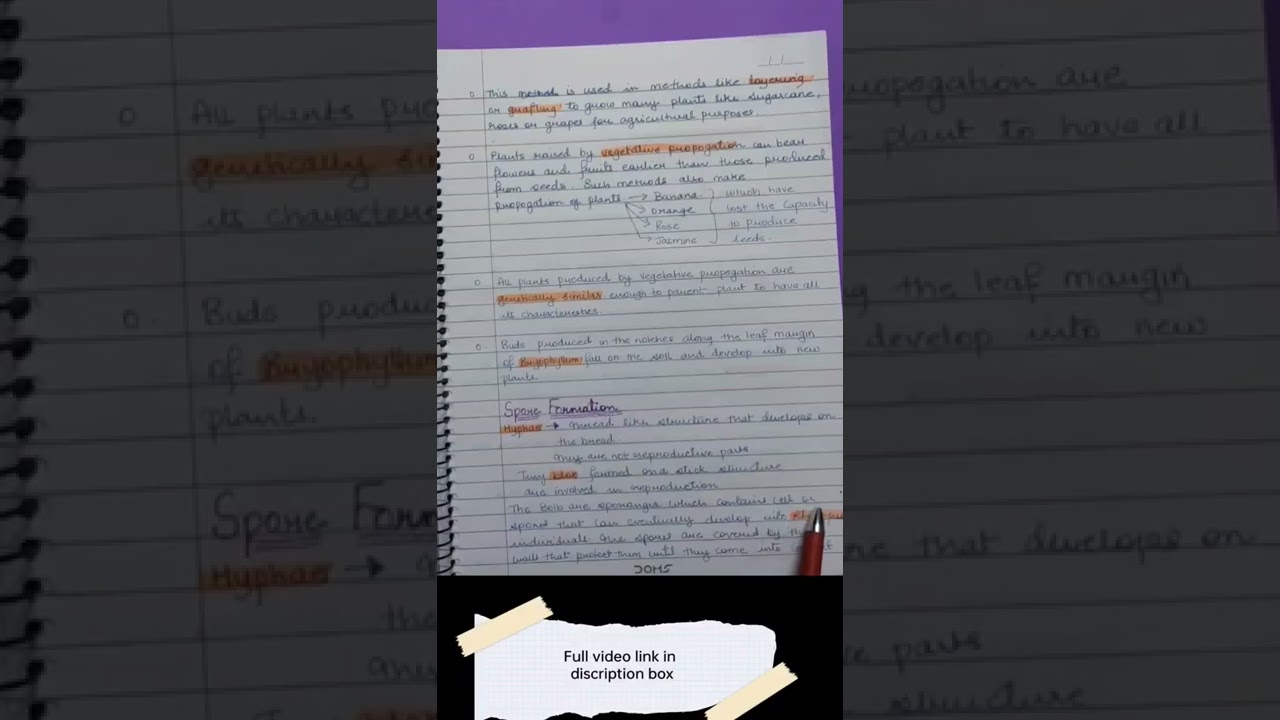 o This method is used in methods like layering
or grafting to grow many plants like sugarcane,
roses or grapes for agricultural purposes.
o Plants raised by vegetative propogation can bear
flowers and fruits earlier than those produced
from seeds. Such methods also make
propogation of plants → Banana which have
→ Orange lost the capacity
→ Rose to produce
→ Jasmine seeds.
o All plants produced by vegetative propogation are
genetically similar enough to parent plant to have all
its characteristics.
o Buds produced in the notches along the leaf margin
of Bryophyllum fall on the soil and develop into new
plants.
Spore Formation
Hyphae → thread like structure that develops on
the bread
They are not reproductive parts
Tiny formed on a stick structure
are involved in reproduction
The are sporangia which contains cell or
spores that can eventually develop into
individuals the spores are covered by
walls that protect them until they come into
DOMS
Full video link in
discription box